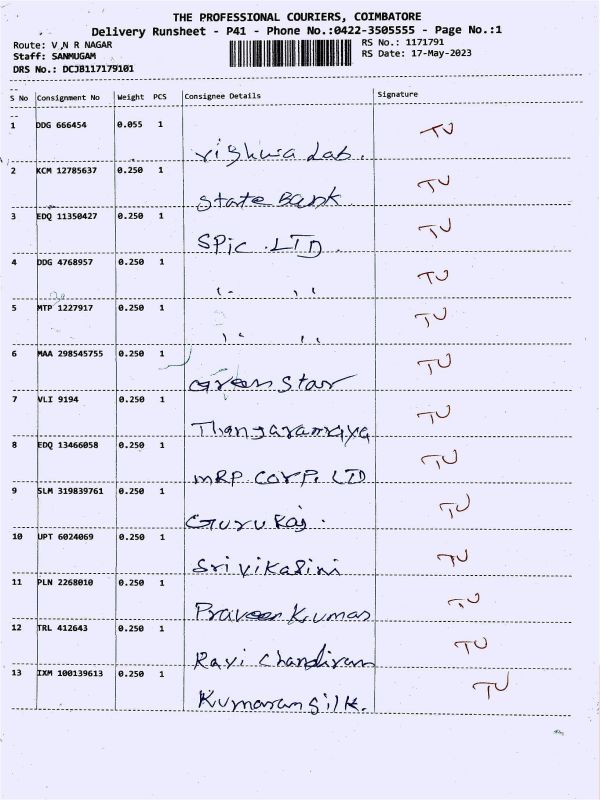 THE PROFESSIONAL COURIERS, COIMBATORE
Delivery Runsheet - P41 - Phone No.:0422-3505555 - Page No.:1
Route: V N R NAGAR
RS No.: 1171791
Staff: SANMUGAM
RS Date: 17-May-2023
DRS No.: DCJB117179101
S No Consignment No Weight PCS Consignee Details Signature
1 DDG 666454 0.055 1 TU
Vishwa Lab.
2 KCM 12785637 0.250 1 TU
State Bank
3 EDQ 11350427 0.250 1 TU
SPic .LTD.
4 DDG 4768957 0.250 1 TU
" "
5 MTP 1227917 0.250 1 TU
" "
6 MAA 298545755 0.250 1 TU
Green Star
7 VLI 9194 0.250 1 TU
8 EDQ 13466058 0.250 1 TU
MRP. CORP. LTD
9 SLM 319839761 0.250 1 TU
Guru Raj.
10 UPT 6024069 0.250 1 TU
Sri Vikasini
11 PLN 2268010 0.250 1 TU
Praveen Kumar
12 TRL 412643 0.250 1 TU
Ravi Chandiran
13 IXM 100139613 0.250 1 TU
Kumaran Silk.